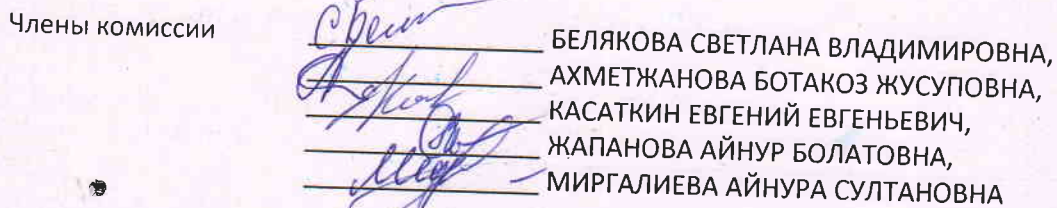 Члены комиссии
БЕЛЯКОВА СВЕТЛАНА ВЛАДИМИРОВНА,
АХМЕТЖАНОВА БОТАКОЗ ЖУСУПОВНА,
КАСАТКИН ЕВГЕНИЙ ЕВГЕНЬЕВИЧ,
ЖАПАНОВА АЙНУР БОЛАТОВНА,
МИРГАЛИЕВА АЙНУРА СУЛТАНОВНА